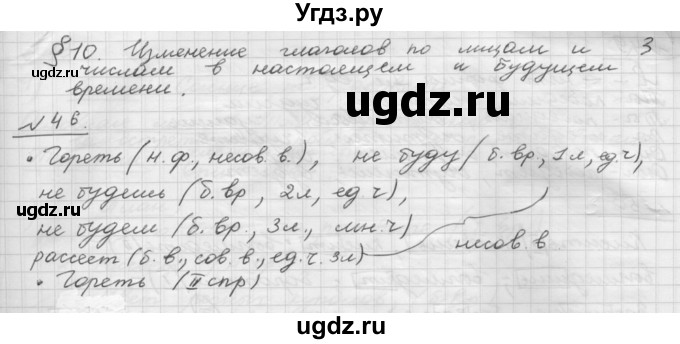 Угдз.ру
§10. Изменение глаголов по лицам и 3
числам в настоящем и будущем
времени.
№46.
• Гореть (н.ф., несов. в.), не буду (б. вр., 1л, ед.ч),
не будешь (б. вр, 2л, ед ч),
не будем (б. вр., 3л., мн. ч)
рассеет (б. в., сов. в., ед.ч. 3л)
несов. в
• Гореть (II спр)
ugdz.ru
ugdz.ru
ugdz.ru
ugdz.ru
ugdz.ru
ugdz.ru
ugdz.ru